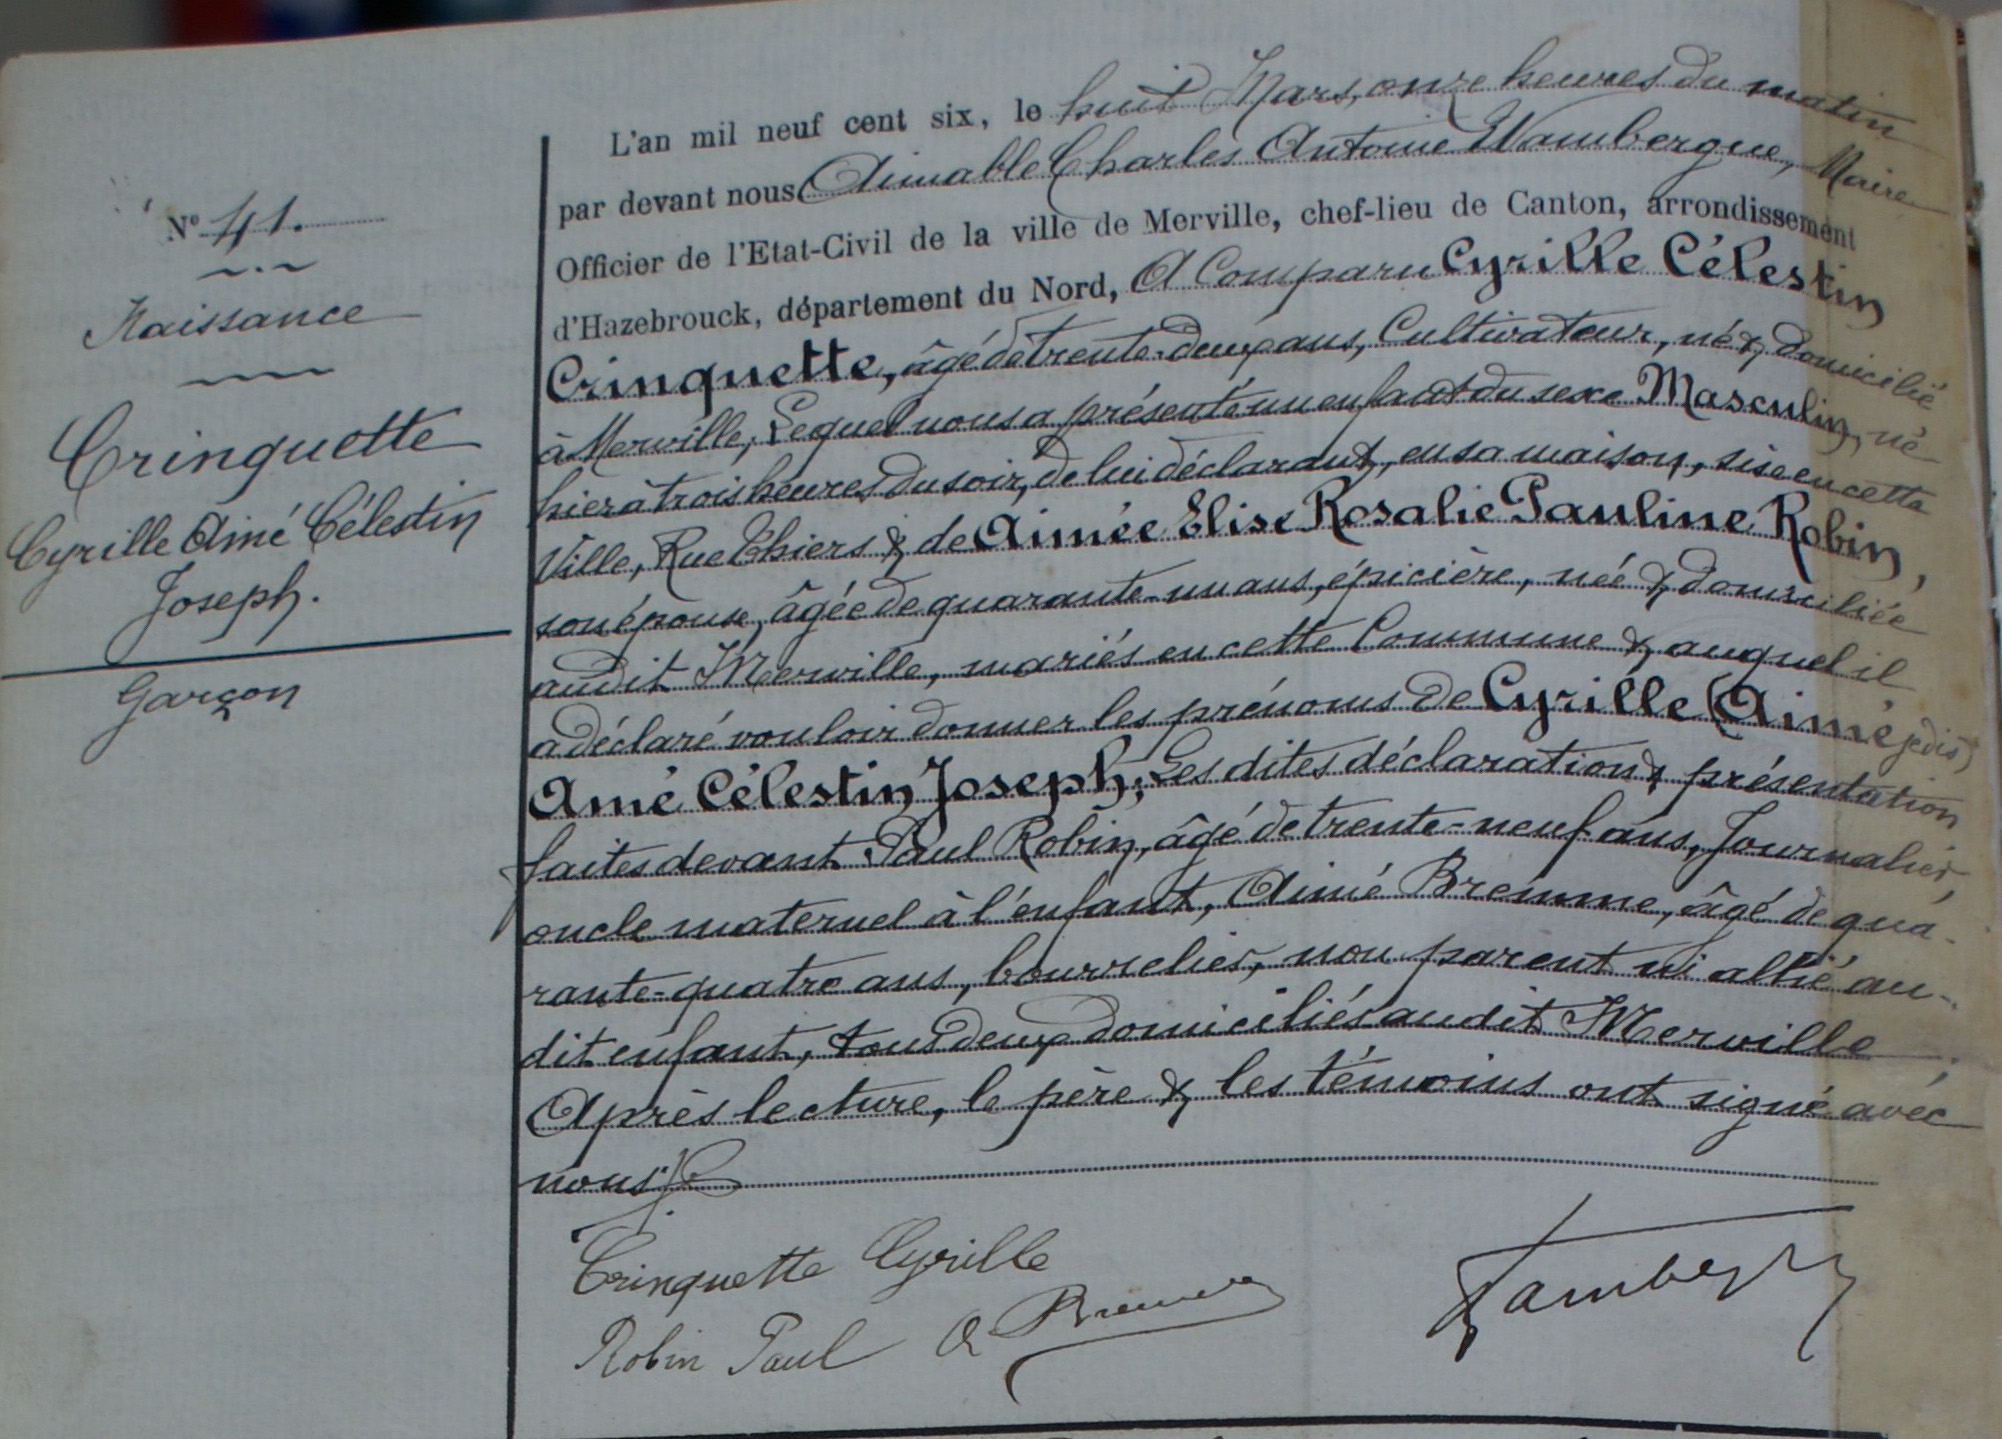 N° 41.
Naissance
Crinquette
Cyrille Amé Célestin
Joseph.
Garçon
L'an mil neuf cent six, le huit Mars, onze heures du matin
par devant nous Aimable Charles Antoine Wambergue, Maire
Officier de l'Etat-Civil de la ville de Merville, chef-lieu de Canton, arrondissement
d'Hazebrouck, département du Nord, A Comparu Cyrille Célestin
Crinquette, âgé de trente-deux ans, Cultivateur, né & domicilié
à Merville, Lequel nous a présenté un enfant du sexe Masculin, né
hier à trois heures du soir, de lui déclarant, en sa maison, sise en cette
Ville, Rue Thiers & de Aimée Elise Rosalie Pauline Robin,
son épouse, âgée de quarante-un ans, épicière, née & domiciliée
audit Merville, mariés en cette Commune & auquel il
a déclaré vouloir donner les prénoms de Cyrille (Aimé je dis)
Amé Célestin Joseph; Les dites déclaration & présentation
faites devant Paul Robin, âgé de trente-neuf ans, Journalier,
oncle maternel à l'enfant, Aimé Bremme, âgé de qua-
rante-quatre ans, bourrelier, non parent ni allié au-
dit enfant, tous deux domiciliés audit Merville.
Après lecture, le père & les témoins ont signé avec
nous
Crinquette Cyrille
Robin Paul A Bremme